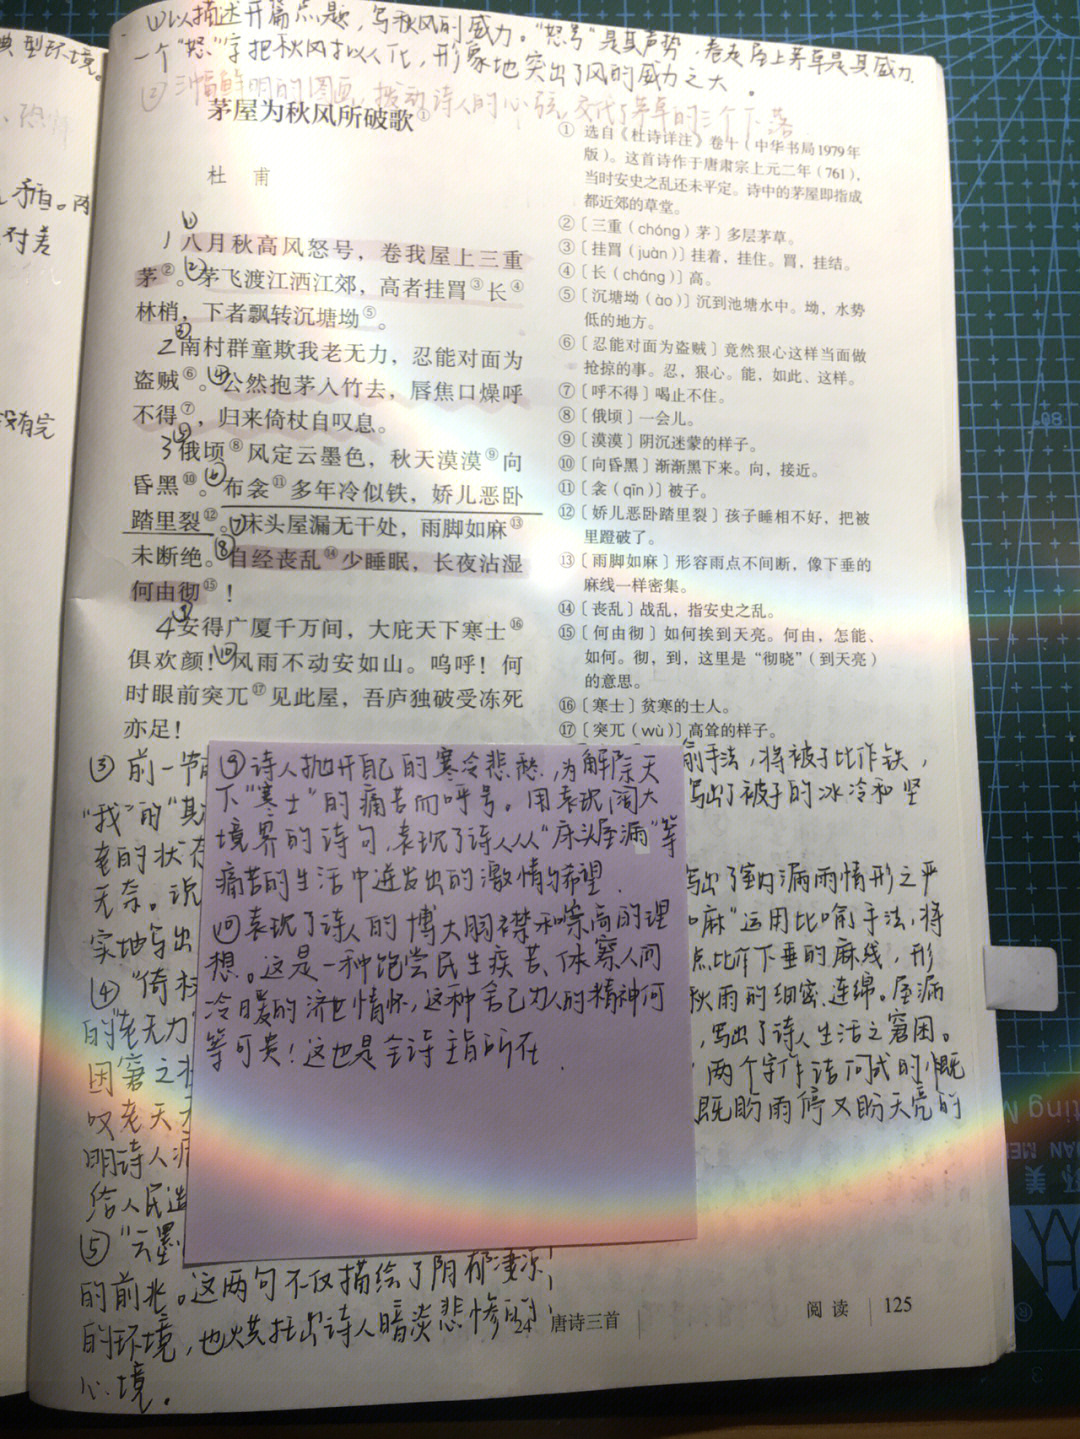 典型环境。
矛盾。
对差
没有完
(1)以描述开篇点题，写秋风的威力。“怒号”是其声势，卷走屋上茅草是其威力.
一个“怒”字把秋风拟人化，形象地突出了风的威力之大.
②三幅鲜明的图画，拨动诗人的心弦，交代了茅草的三个下落
茅屋为秋风所破歌①
杜 甫
1①八月秋高风怒号，卷我屋上三重
茅②。②茅飞渡江洒江郊，高者挂罥③长④
林梢，下者飘转沉塘坳⑤。
2③南村群童欺我老无力，忍能对面为
盗贼⑥。④公然抱茅入竹去，唇焦口燥呼
不得⑦，归来倚杖自叹息。
3⑤俄顷⑧风定云墨色，秋天漠漠⑨向
昏黑⑩。⑥布衾⑪多年冷似铁，娇儿恶卧
踏里裂⑫。⑦床头屋漏无干处，雨脚如麻⑬
未断绝。⑧自经丧乱⑭少睡眠，长夜沾湿
何由彻⑮！
4⑨安得广厦千万间，大庇天下寒士⑯
俱欢颜！⑩风雨不动安如山。呜呼！何
时眼前突兀⑰见此屋，吾庐独破受冻死
亦足！
① 选自《杜诗详注》卷十（中华书局1979年
版）。这首诗作于唐肃宗上元二年（761），
当时安史之乱还未平定。诗中的茅屋即指成
都近郊的草堂。
②〔三重（chóng）茅〕多层茅草。
③〔挂罥（juàn）〕挂着，挂住。罥，挂结。
④〔长（cháng）〕高。
⑤〔沉塘坳（ào）〕沉到池塘水中。坳，水势
低的地方。
⑥〔忍能对面为盗贼〕竟然狠心这样当面做
抢掠的事。忍，狠心。能，如此、这样。
⑦〔呼不得〕喝止不住。
⑧〔俄顷〕一会儿。
⑨〔漠漠〕阴沉迷蒙的样子。
⑩〔向昏黑〕渐渐黑下来。向，接近。
⑪〔衾（qīn）〕被子。
⑫〔娇儿恶卧踏里裂〕孩子睡相不好，把被
里蹬破了。
⑬〔雨脚如麻〕形容雨点不间断，像下垂的
麻线一样密集。
⑭〔丧乱〕战乱，指安史之乱。
⑮〔何由彻〕如何挨到天亮。何由，怎能、
如何。彻，到，这里是“彻晓”（到天亮）
的意思。
⑯〔寒士〕贫寒的士人。
⑰〔突兀（wù）〕高耸的样子。
③ 前一节
“我”的“其
老的状态
无奈。说
实地写出
④“倚杖
的“老无力”
困窘之状
叹老天
明诗人
给人民造
⑤“云墨
的前兆。这两句不仅描绘了阴郁凄凉
的环境，也烘托出诗人暗淡悲惨的
心境。
⑨诗人抛开自己的寒冷悲愁，为解除天
下“寒士”的痛苦而呼号。用表现阔大
境界的诗句，表现了诗人从“床头屋漏”等
痛苦的生活中迸发出的激情与希望.
⑩表现了诗人的博大胸襟和崇高的理
想。这是一种饱尝民生疾苦、体察人间
冷暖的济世情怀，这种舍己为人的精神何
等可贵！这也是全诗主旨所在.
喻手法，将被子比作铁，
写出了被子的冰冷和坚
写出了屋内漏雨情形之严
如麻”运用比喻手法，将
点比作下垂的麻线，形
秋雨的细密、连绵。屋漏
，写出了诗人生活之窘困。
两个字作诘问式的慨
既盼雨停又盼天亮的
24 唐诗三首
阅读 125